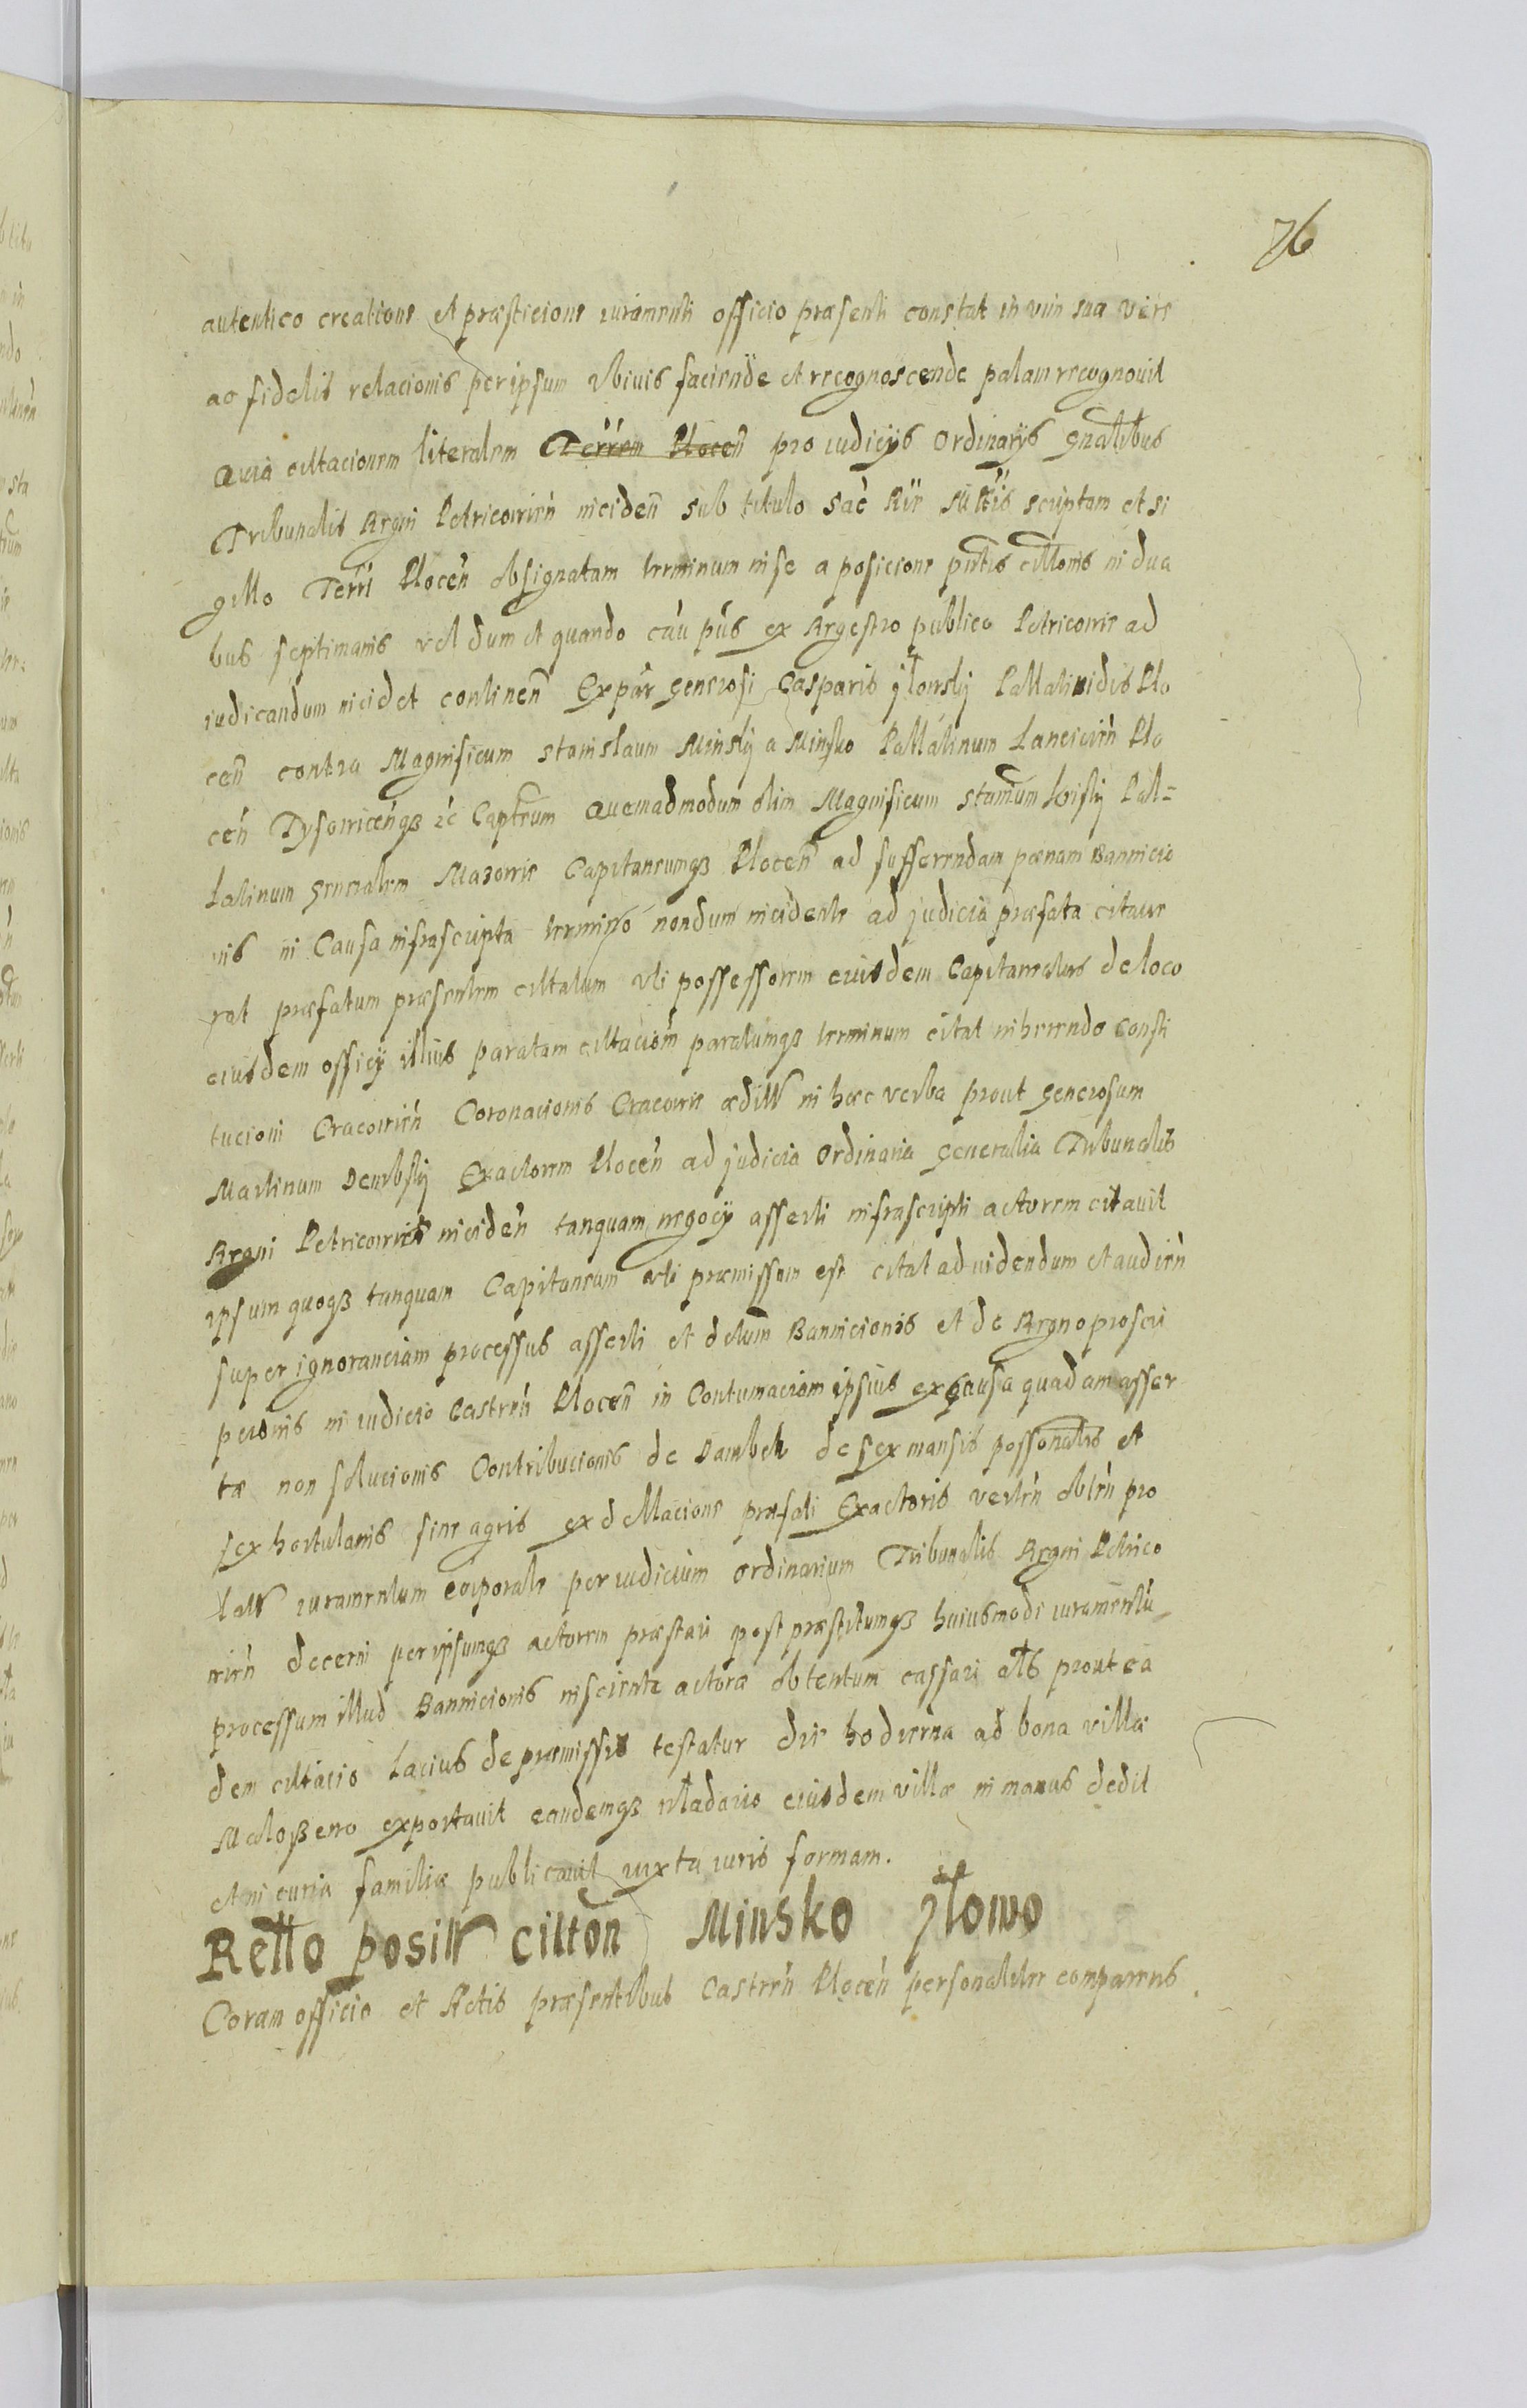 76
autentico creatione et præsticione iuramenti officio præsenti constat in vim sua vere
ac fidelis relacionis per ipsum vbiuis faciende et recognoscende palam recognouit
Quia citacionem literalem Terrem Plocen pro iudicijs Ordinarijs gnalibus
Tribunalis Regni Petricouien inciden sub titulo Sac Rie Mttis scriptam et si
gillo Terri Plocen obsignatam terminum in se a posicione pntis cittonis in dua
bus septimanis vel dum et quando eau pns ex Regestro publico Petricouie ad
iudicandum incidet continen Ex par generosi Casparis jłowskj Pallatinidis Plo
cen contra Magnificum Stanislaum Minskj a Minsko Pallatinum Lanciciren Plo
cen Dysouicenqz &c Captrum Quemadmodum olim Magnificum Stanum Pall=
latinum generalem Mazouie Capitaneumqz Plocen ad sufferendam pœnam Bannicio
nis in Causa infrascripta termino nondum incidente ad judicia præfata citaue
rat præfatum præsentem cittatum vti possessorem eiusdem Capitaneatus de loco
eiusdem officij illius paratam cittaciom paratumqz terminum citat inherendo Consti
tucioni Cracouien Coronacionis Cracouie æditæ in hæc verba prout generosum
Martinum Dembskj Exactorem Plocen ad judicia Ordinaria generallia Tribunalis
Regni Petricouien inciden tanquam negocij asserti infrascripti actorem citauit
ipsum quoqz tanquam Capitaneum vti præmissum est citat ad uidendum et audien
super ignoranciam processus asserti et Bannicionis et de Regno proscri
pcionis in iudicio Castren Plocen in Contumaciam ipsius ex causa quadam asser
tæ non solucionis Contributionis de Dambek de sex mansis possonatis et
sex hortulanis sine agris ex dellacione præfati Exactoris obten pro
latæ iuramentum corporale per iudicium Ordinarium Tribunalis Regni Petrico
uien decerni per ipsumqz actorem præstari post præstitumqz huiusmodi iuramentu
processum illud Bannicionis insciente actore obtentum cassari als prout ea
dem cittacio Lacius de præmissis testatur die hodierna ad bona villæ
Maloßewo exportauit eandemqz włodario eiusdem villæ in manus dedit
et in curia familiæ publicauit iuxta iuris formam.
Retto positæ citton Minsko jłowo
Coram officio et Actis præsentibus Castren Plocen personaliter comparens